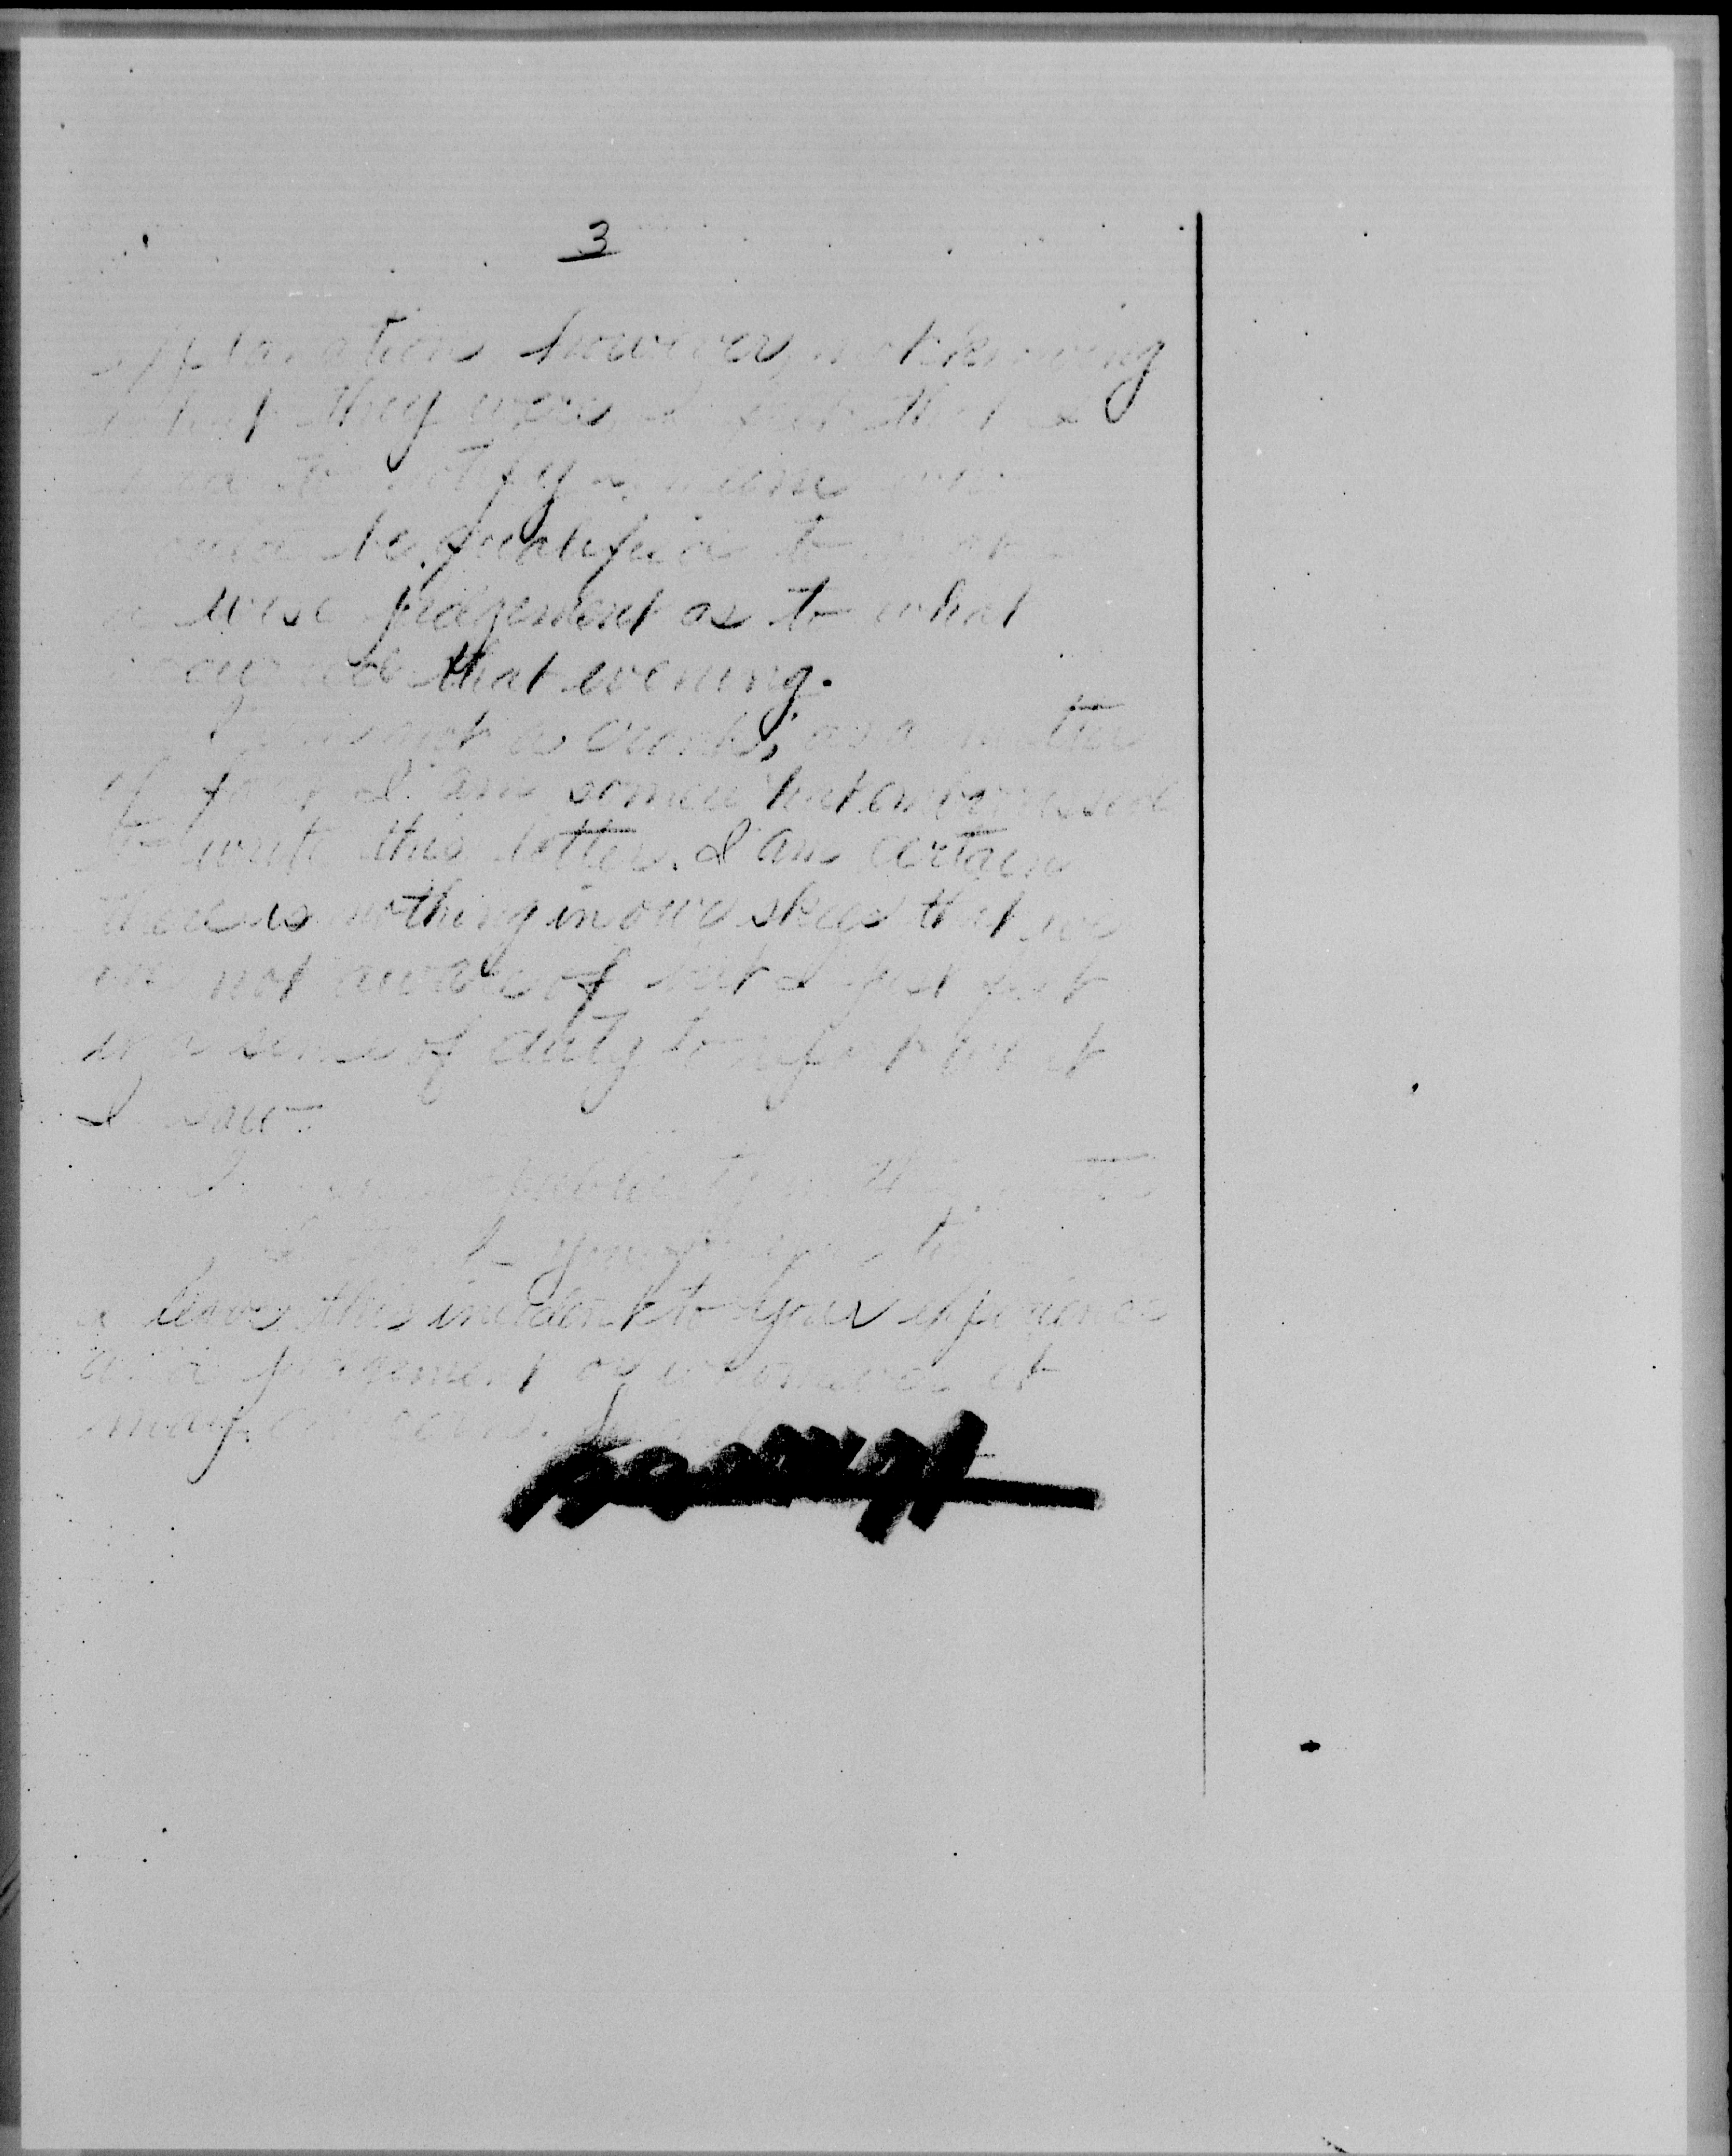 3
explanation however, not knowing
what they were, I felt that I
had to notify someone who
would be qualified to make
a wise judgement as to what
occurred that evening.
I am not a crank, as a matter
of fact I am somewhat embarrassed
to write this letter. I am certain
there is nothing in our skys that we
are not aware of but I just felt
in a sense of duty to report what
I saw.
I
I thank you for your time
I leave this incident to your experience
and judgement or whomever it
may concern.